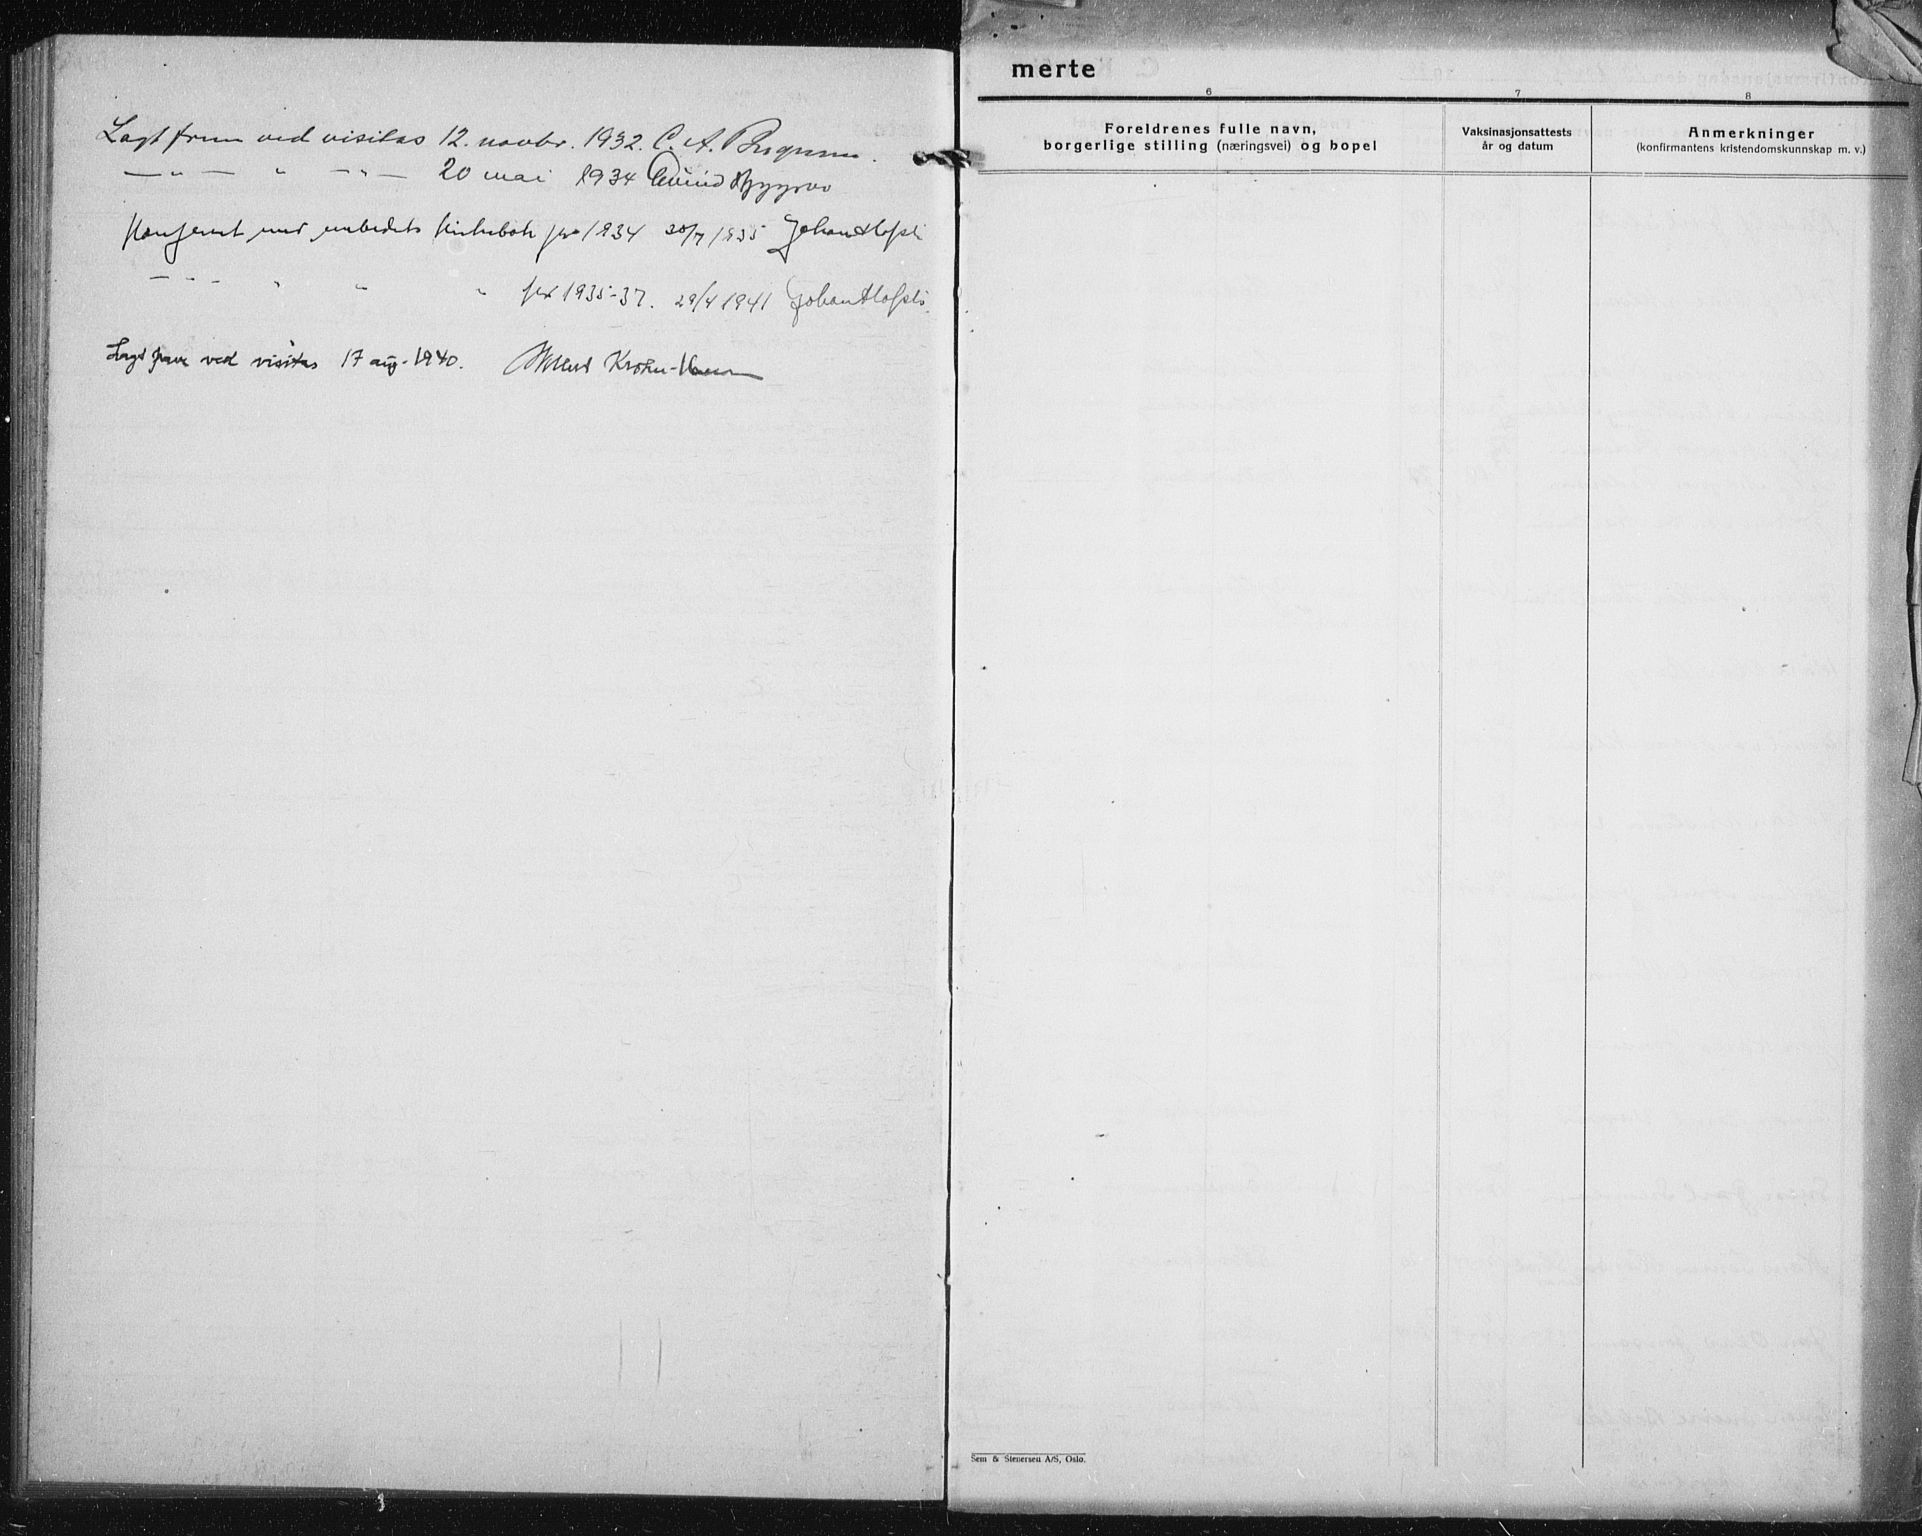 Lagt frem ved visitas 12. novbr. 1932. C. A.
— " — " — " — 20 mai 1934 Øivind
Konferert med embedets kirkebok for 1934 30/7 1935 Johan Hofsli
— " — " " " for 1935-37. 29/4 1941 Johan Hofsli.
Lagt frem ved visitas 17 aug. 1940. Wollert Krohn-Hansen
merte
6
7
8
Foreldrenes fulle navn,
borgerlige stilling (næringsvei) og bopel
Vaksinasjonsattests
år og datum
Anmerkninger
(konfirmantens kristendomskunnskap m. v.)
Sem & Stenersen A/S, Oslo.